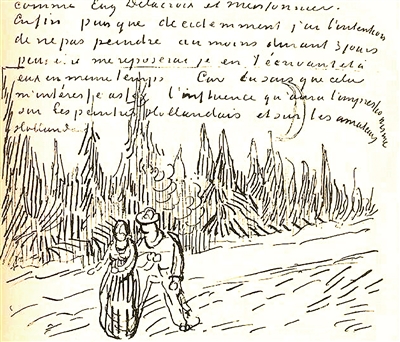 comme Eug Delacroix et Meissonier.
Enfin puisque decidemment j'ai l'intention
de ne pas peindre au moins durant 3 jours
peut être me reposerai je en t'écrivant et à
eux en meme temps Car tu sais que cela
m'intéresse assez l'influence qu'aura l'impressionisme
sur les peintres Hollandais et sur les amateurs
Hollandais